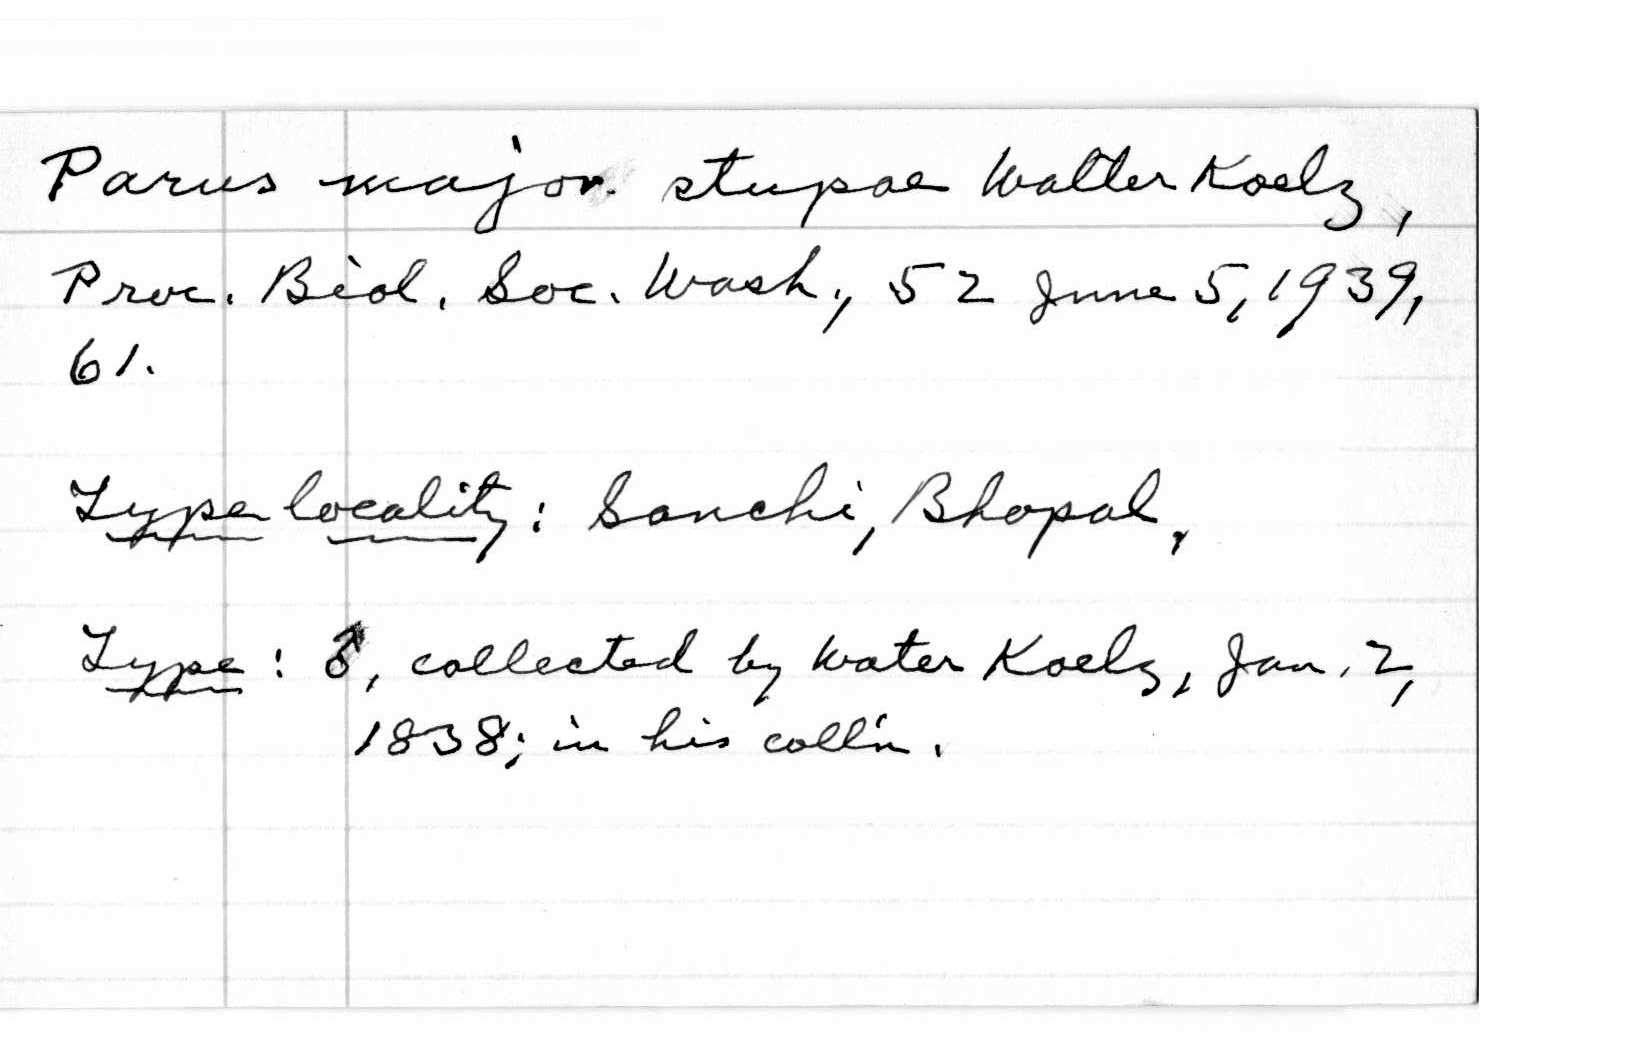 Parus major. stupae Walter Koelz,
Proc. Biol. Soc. Wash., 52 June 5, 1939,
61.
Type locality: Sanchi, Bhopal,
Type: ♂, collected by Water Koelz, Jan. 2,
1838; in his coll'n.